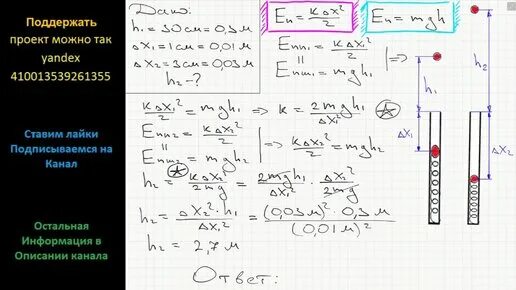 Поддержать
проект можно так
yandex
410013539261355
Ставим лайки
Подписываемся на
Канал
Остальная
Информация в
Описании канала
Дано:
h₁ = 30см = 0,3м
Δx₁ = 1см = 0,01м
Δx₂ = 3см = 0,03м
h₂ - ?
Eп = kΔx²/2
Eп = mgh
Eпп1 = kΔx₁²/2
=
Eпт1 = mgh₁
=>
kΔx₁²/2 = mgh₁ => k = 2mgh₁/Δx₁²
Eпп2 = kΔx₂²/2
=
Eпт2 = mgh₂
=> kΔx₂²/2 = mgh₂
h₂ = kΔx₂²/2mg = 2mgh₁/Δx₁² · Δx₂²/2mg
h₂ = Δx₂² · h₁/Δx₁² = (0,03м)² · 0,3м/(0,01м)²
h₂ = 2,7 м
Ответ:
h₁
h₂
Δx₁
Δx₂